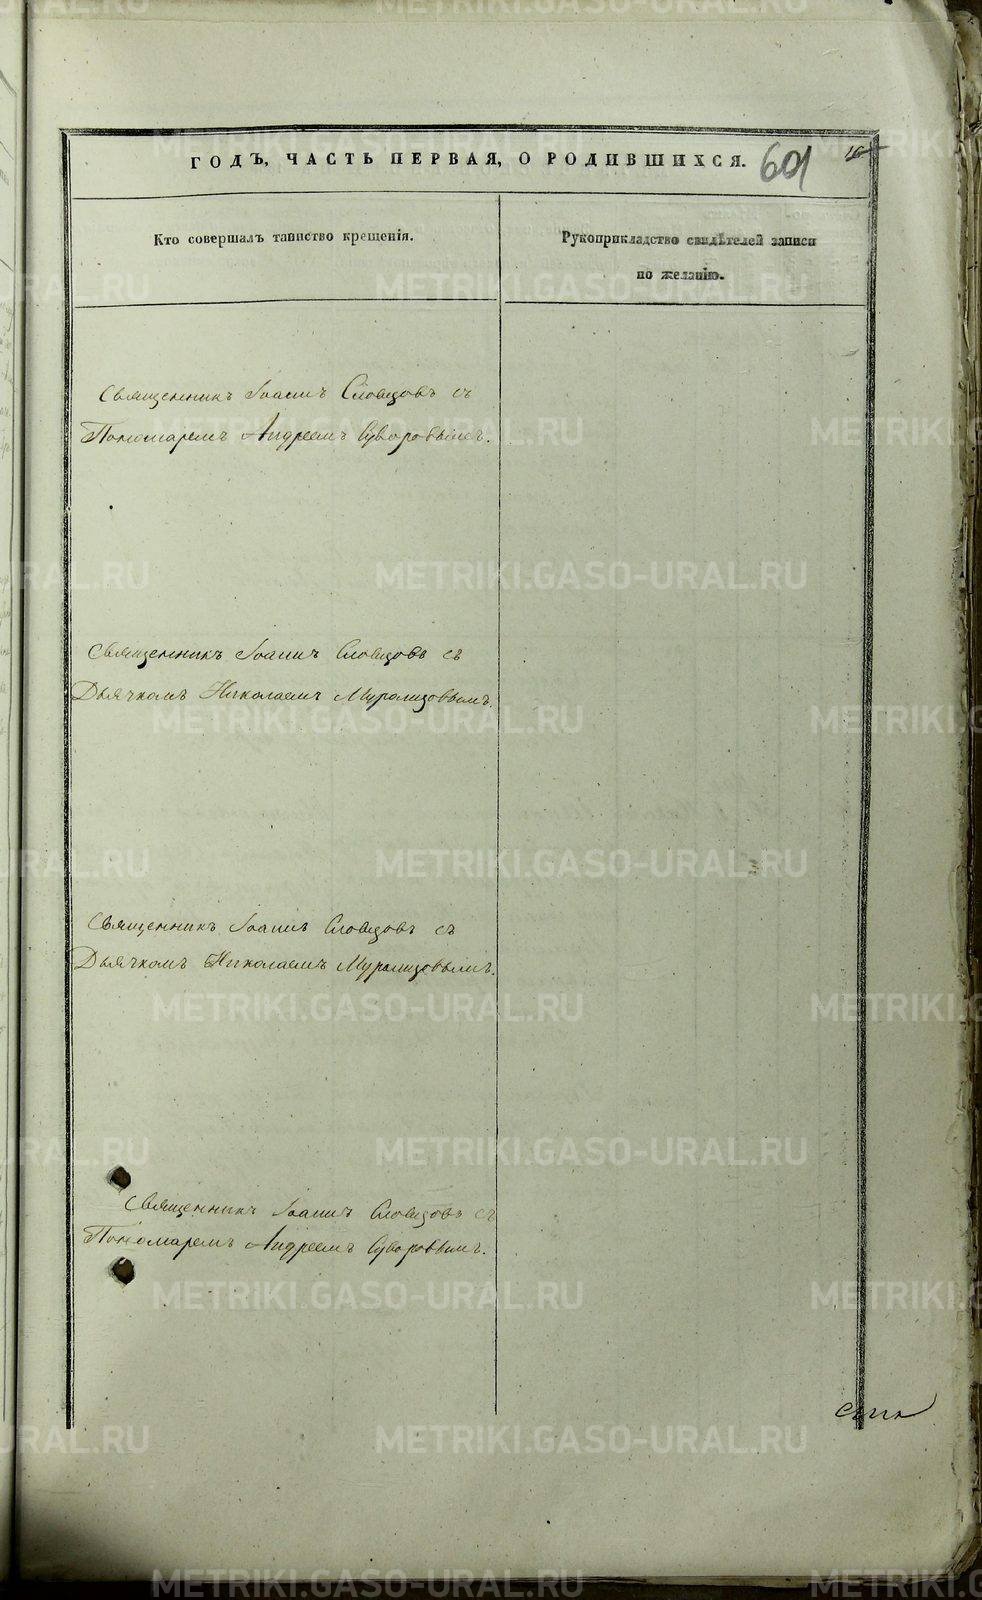 ГОДЪ, ЧАСТЬ ПЕРВАЯ, О РОДИВШИХСЯ.
601
Кто совершалъ таинство крещенія.
Рукоприкладство свидѣтелей записи
по желанію.
Священникъ Іоаннъ Словцовъ съ
Пономаремъ Андреемъ Суворовымъ.
Священникъ Іоаннъ Словцовъ съ
Дьячкомъ Николаемъ
Священникъ Іоаннъ Словцовъ съ
Дьячкомъ Николаемъ
Священникъ Іоаннъ Словцовъ съ
Пономаремъ Андреемъ Суворовымъ.
METRIKI.GASO-URAL.RU